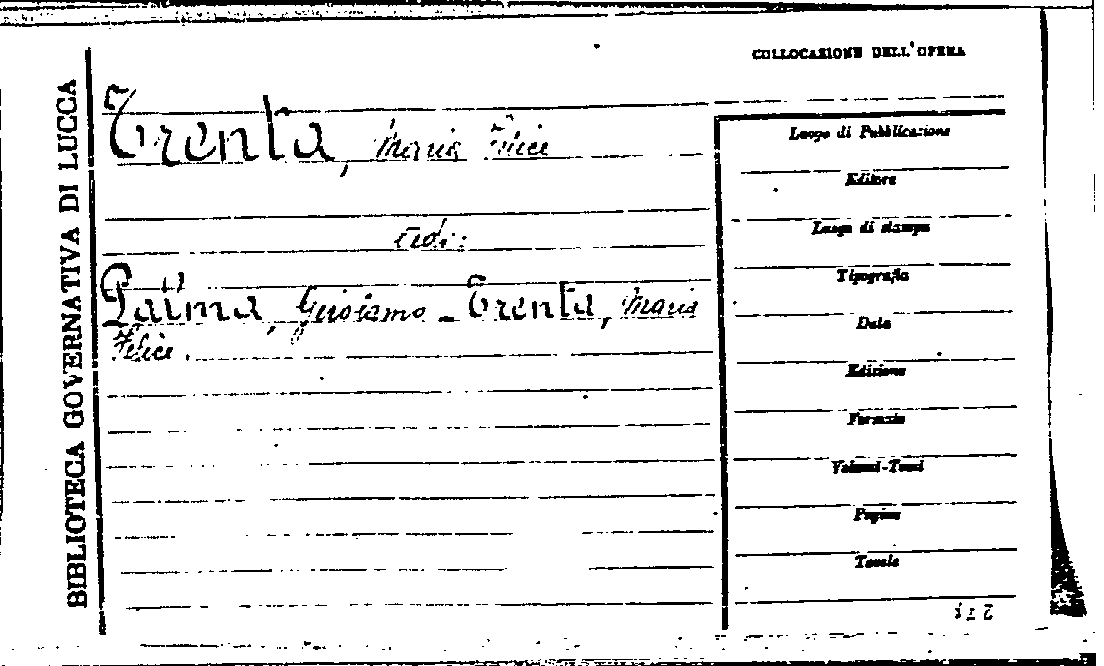 BIBLIOTECA GOVERNATIVA DI LUCCA
COLLOCAZIONE DELL'OPERA
Trenta, Maria Felice
vedi:
Palma, Girolamo - Trenta, Maria
Felice.
Luogo di Pubblicazione
Editore
Luogo di stampa
Tipografia
Data
Edizione
Formato
Volumi-Tomi
Pagine
Tavole